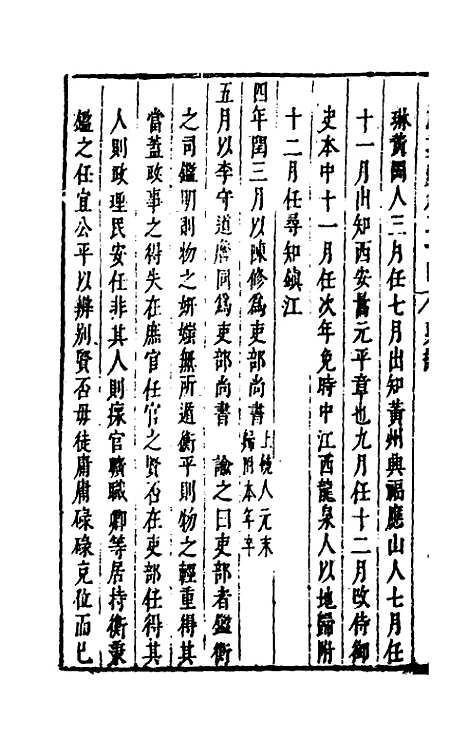 琳黃岡人三月任七月出知黃州典福應山人七月任
十一月出知西安舊元平章也九月任十二月改侍御
史本中十一月任次年免時中江西龍泉人以地歸附
十二月任尋知鎮江
四年閏三月以陳修為吏部尚書上饒人元末歸附本年卒
五月以李守道詹同為吏部尚書 諭之曰吏部者鑑衡
之司鑑明則物之妍媸無所遁衡平則物之輕重得其
當蓋政事之得失在庶官任官之賢否在吏部任得其
人則政理民安任非其人則瘝官曠職卿等居持衡秉
鑑之任宜公平以辨別賢否毋徒庸庸碌碌克位而已